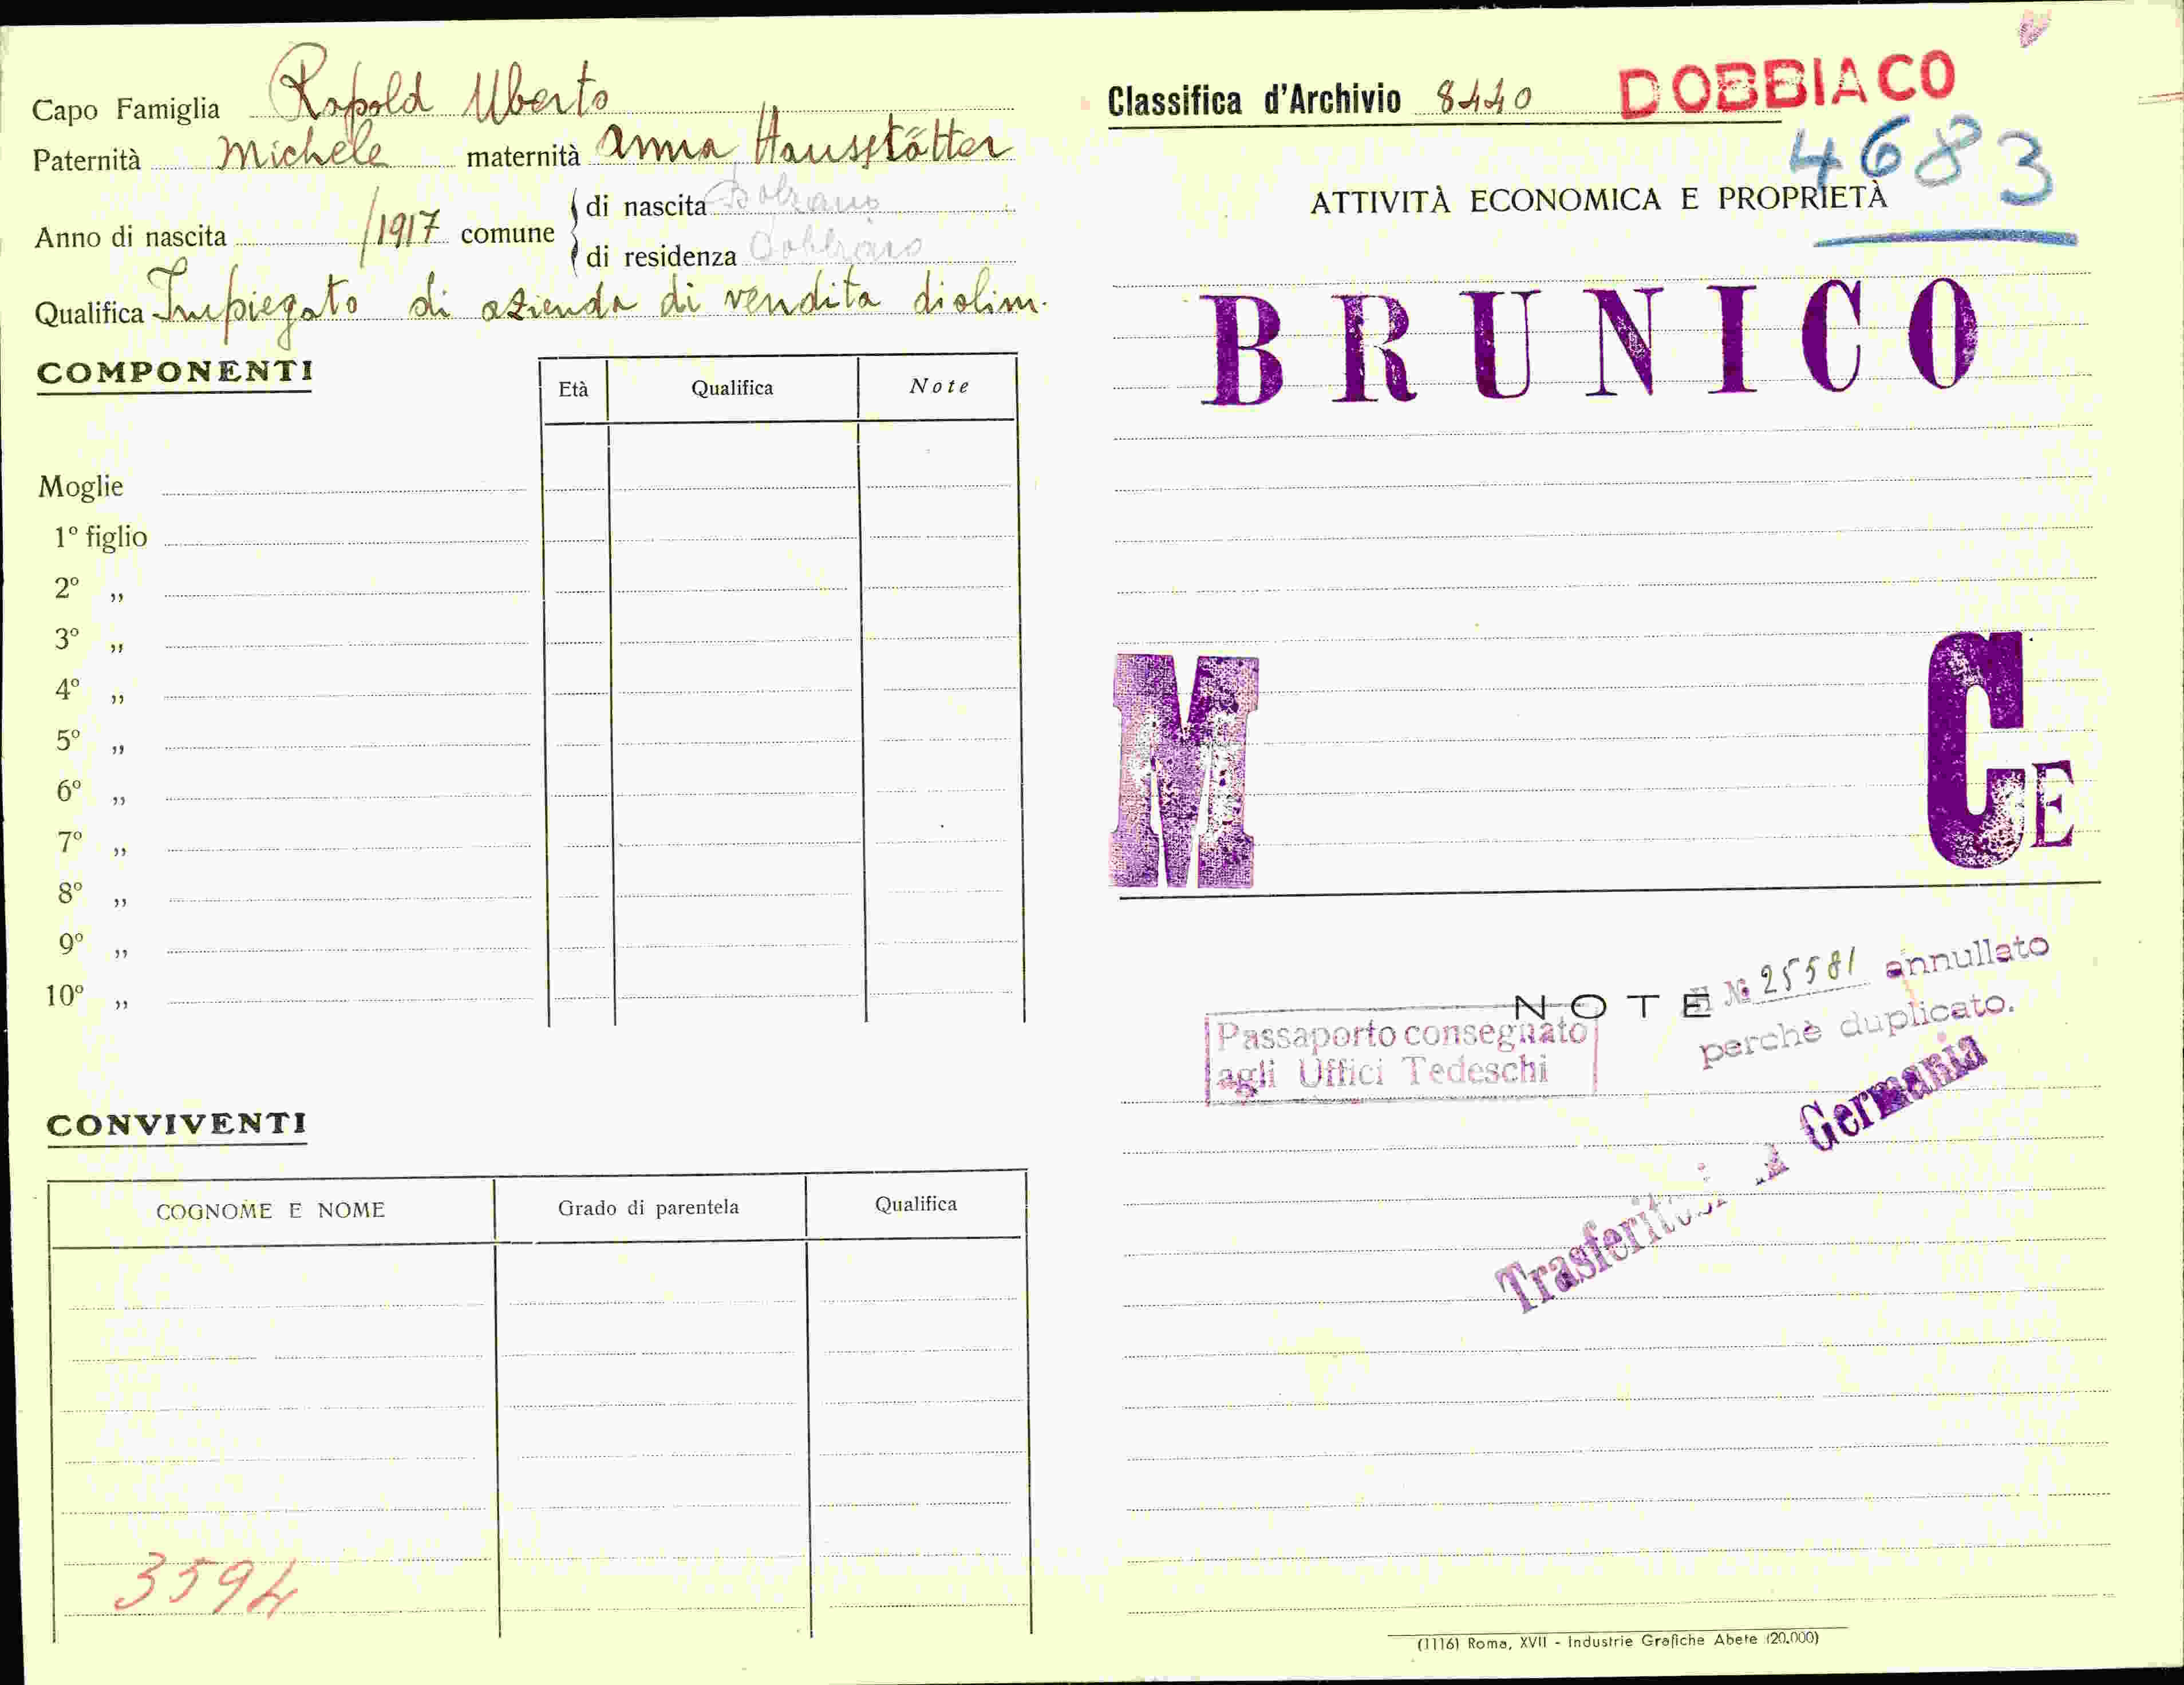 Capo Famiglia Rapold Uberto
Paternità Michele maternità Anna Hausstätter
Anno di nascita /1917 comune
di nascita Bolzano
di residenza Dobbiaco
Qualifica Impiegato di azienda di vendita di alim.
COMPONENTI
Età Qualifica Note
Moglie
1º figlio
2º „
3º „
4º „
5º „
6º „
7º „
8º „
9º „
10º „
CONVIVENTI
COGNOME E NOME Grado di parentela Qualifica
3594
Classifica d'Archivio 8440 DOBBIACO
4683
ATTIVITÀ ECONOMICA E PROPRIETÀ
BRUNICO
M CE
NOTE
Nº 25581 annullato
perchè duplicato.
Passaporto consegnato
agli Uffici Tedeschi
Germania
(1116) Roma, XVII - Industrie Grafiche Abete (20.000)